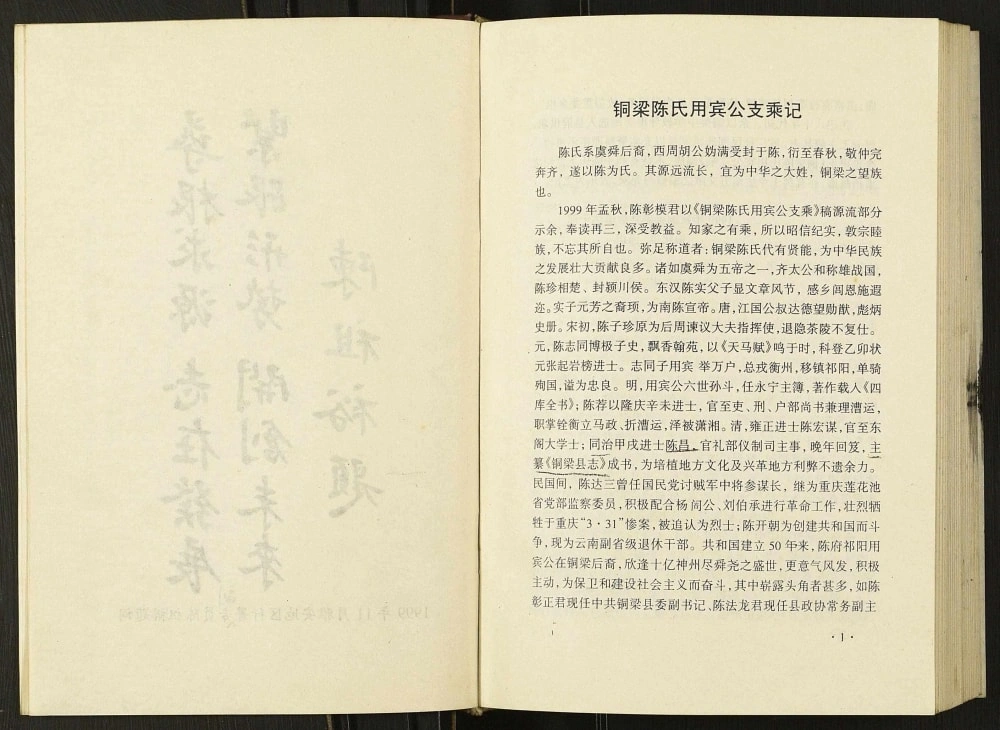 铜梁陈氏用宾公支乘记
陈氏系虞舜后裔，西周胡公妫满受封于陈，衍至春秋，敬仲完
奔齐，遂以陈为氏。其源远流长，宜为中华之大姓，铜梁之望族
也。
1999年孟秋，陈彰模君以《铜梁陈氏用宾公支乘》稿源流部分
示余，奉读再三，深受教益。知家之有乘，所以昭信纪实，敦宗睦
族，不忘其所自也。弥足称道者：铜梁陈氏代有贤能，为中华民族
之发展壮大贡献良多。诸如虞舜为五帝之一，齐太公和称雄战国，
陈珍相楚、封颍川侯。东汉陈实父子显文章风节，感乡闾恩施遐
迩。实子元芳之裔顼，为南陈宣帝。唐，江国公叔达德望勋猷，彪炳
史册。宋初，陈子珍原为后周谏议大夫指挥使，退隐茶陵不复仕。
元，陈志同博极子史，飘香翰苑，以《天马赋》鸣于时，科登乙卯状
元张起岩榜进士。志同子用宾 举万户，总戎衡州，移镇祁阳，单骑
殉国，谥为忠良。明，用宾公六世孙斗，任永宁主簿，著作载入《四
库全书》；陈荐以隆庆辛未进士，官至吏、刑、户部尚书兼理漕运，
职掌铨衡立马政、折漕运，泽被潇湘。清，雍正进士陈宏谋，官至东
阁大学士；同治甲戌进士陈昌，官礼部仪制司主事，晚年回笈，主
纂《铜梁县志》成书，为培植地方文化及兴革地方利弊不遗余力。
民国间，陈达三曾任国民党讨贼军中将参谋长，继为重庆莲花池
省党部监察委员，积极配合杨闇公、刘伯承进行革命工作，壮烈牺
牲于重庆“3·31”惨案，被追认为烈士；陈开朝为创建共和国而斗
争，现为云南副省级退休干部。共和国建立50年来，陈府祁阳用
宾公在铜梁后裔，欣逢十亿神州尽舜尧之盛世，更意气风发，积极
主动，为保卫和建设社会主义而奋斗，其中崭露头角者甚多，如陈
彰正君现任中共铜梁县委副书记、陈法龙君现任县政协常务副主
·1·